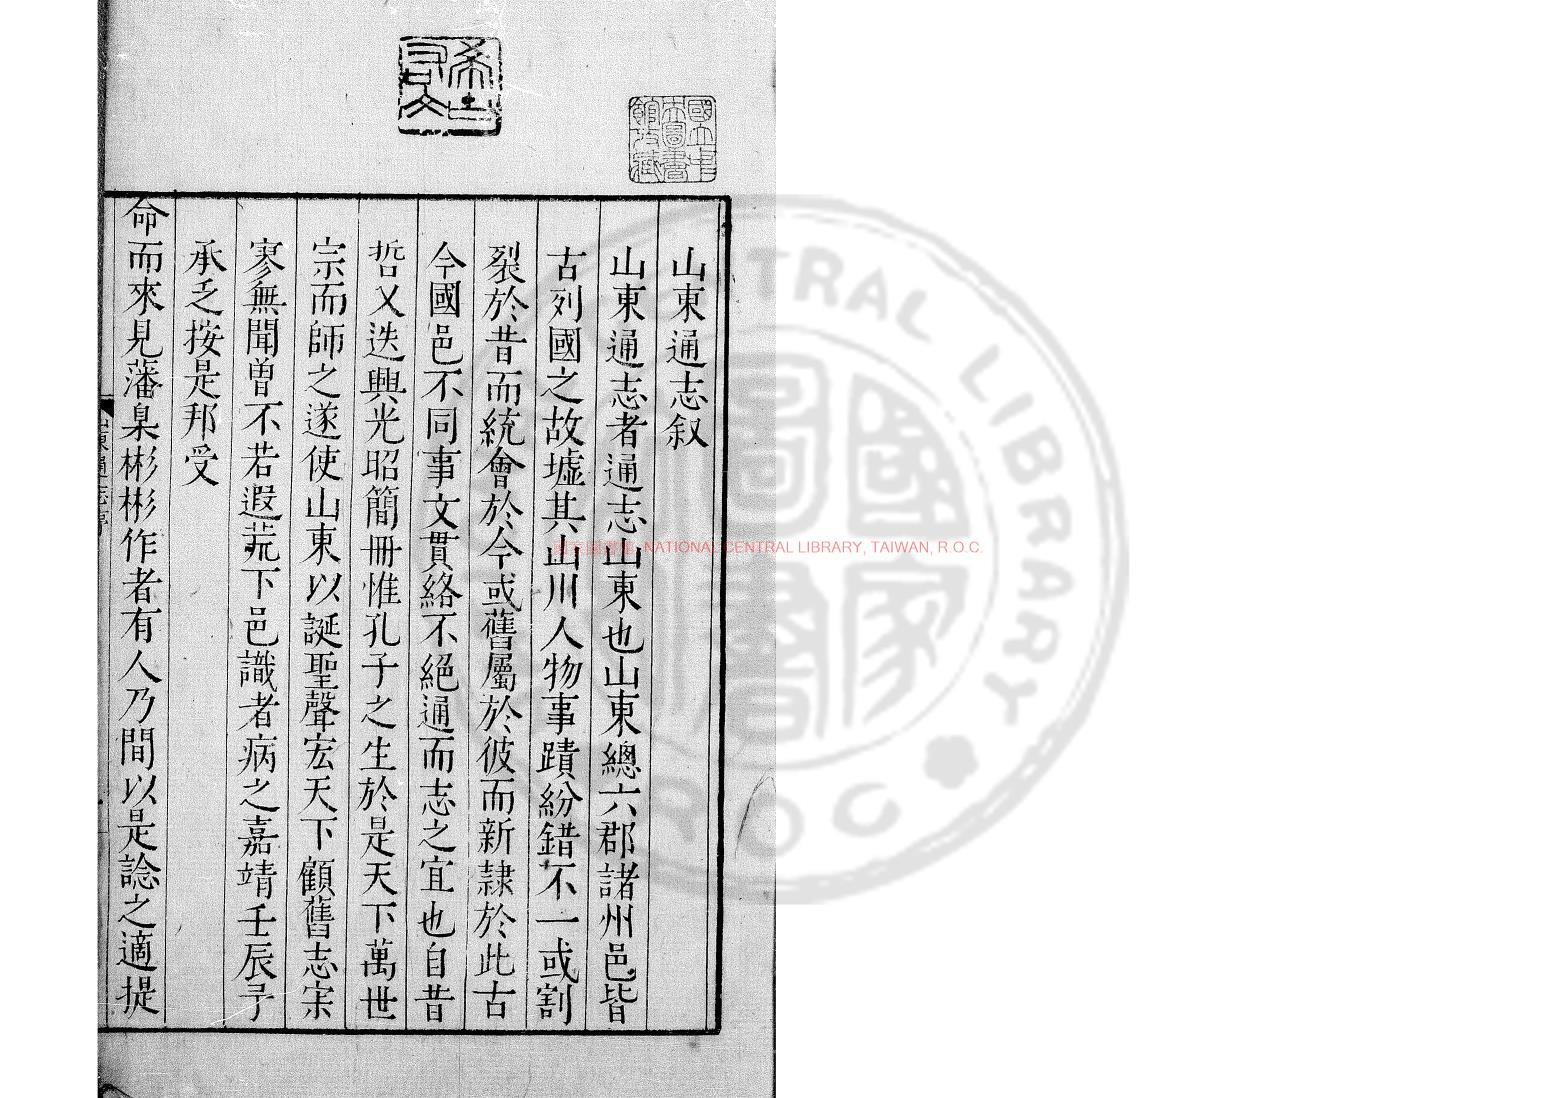 山東通志叙
山東通志者通志山東也山東總六郡諸州邑皆
古列國之故墟其山川人物事蹟紛錯不一或割
裂於昔而統會於今或舊屬於彼而新隷於此古
今國邑不同事文貫絡不絕通而志之宜也自昔
哲乂迭興光昭簡冊惟孔子之生於是天下萬世
宗而師之遂使山東以誕聖聲宏天下顧舊志宋
寥無聞曾不若遐荒下邑識者病之嘉靖壬辰予
承乏按是邦受
命而來見藩臬彬彬作者有人乃間以是諗之適提
希古
右文
國立中
央圖書
館收藏
國家圖書館 NATIONAL CENTRAL LIBRARY, TAIWAN, R.O.C.
CENTRAL LIBRARY
R.O.C
國家
圖書